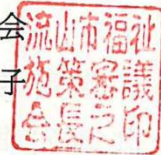 会
子
流山市福祉
施策審議
会長之印